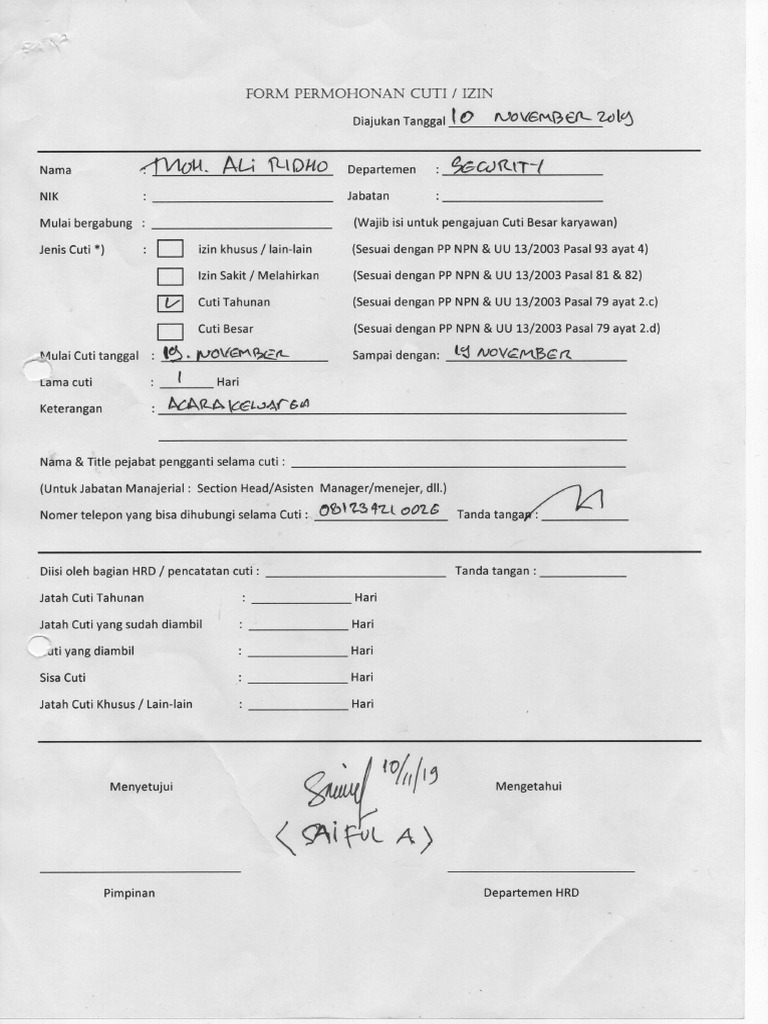 FORM PERMOHONAN CUTI / IZIN
Diajukan Tanggal 10 NOVEMBER 2019
Nama : MOH. ALI RIDHO Departemen : SECURITY
NIK : Jabatan :
Mulai bergabung : (Wajib isi untuk pengajuan Cuti Besar karyawan)
Jenis Cuti *) : izin khusus / lain-lain (Sesuai dengan PP NPN & UU 13/2003 Pasal 93 ayat 4)
Izin Sakit / Melahirkan (Sesuai dengan PP NPN & UU 13/2003 Pasal 81 & 82)
Cuti Tahunan (Sesuai dengan PP NPN & UU 13/2003 Pasal 79 ayat 2.c)
Cuti Besar (Sesuai dengan PP NPN & UU 13/2003 Pasal 79 ayat 2.d)
Mulai Cuti tanggal : 19. NOVEMBER Sampai dengan: 19 NOVEMBER
Lama cuti : 1 Hari
Keterangan : ACARA KELUARGA
Nama & Title pejabat pengganti selama cuti :
(Untuk Jabatan Manajerial : Section Head/Asisten Manager/menejer, dll.)
Nomer telepon yang bisa dihubungi selama Cuti : 081234210026 Tanda tangan :
Diisi oleh bagian HRD / pencatatan cuti : Tanda tangan :
Jatah Cuti Tahunan : Hari
Jatah Cuti yang sudah diambil : Hari
uti yang diambil : Hari
Sisa Cuti : Hari
Jatah Cuti Khusus / Lain-lain : Hari
10/11/19
Menyetujui Mengetahui
(SAIFUL A)
Pimpinan Departemen HRD